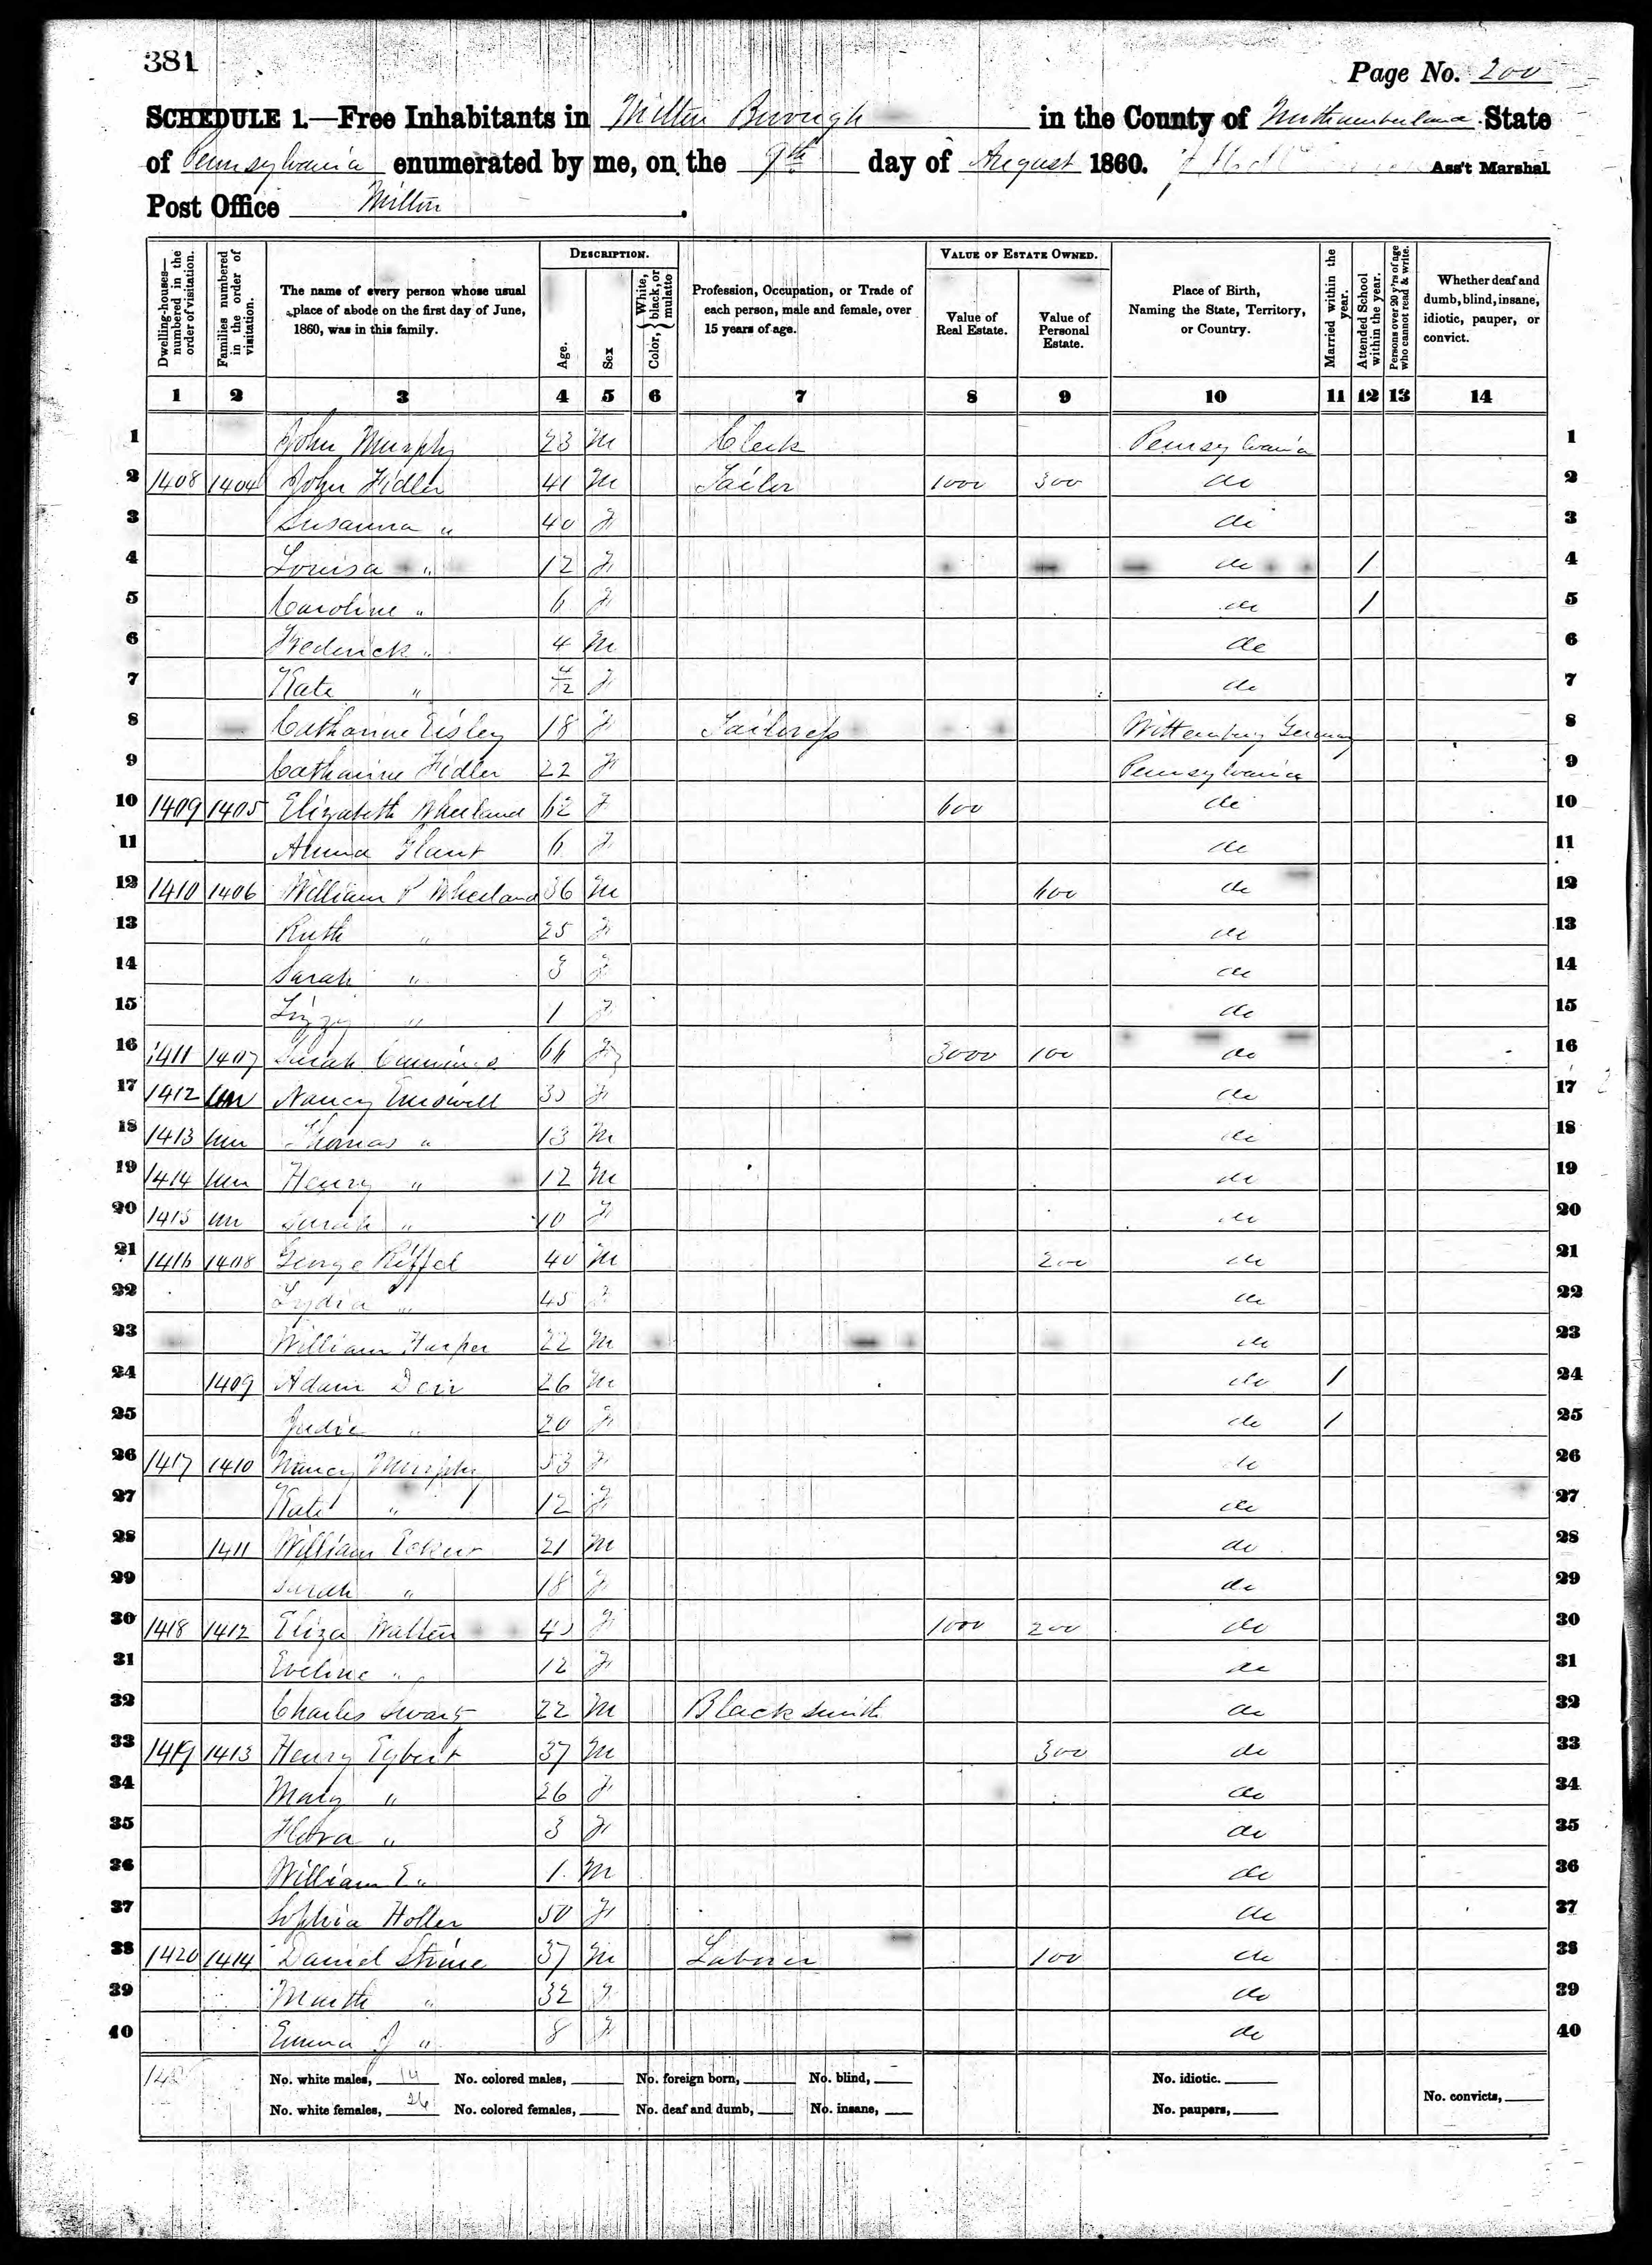 381
Page No. 200
SCHEDULE 1.—Free Inhabitants in Milton Borough in the County of Northumberland State
of Pennsylvania enumerated by me, on the 9th day of August 1860. Ass't Marshal
Post Office Milton.
Dwelling-houses—numbered in the order of visitation. Families numbered in the order of visitation. The name of every person whose usual place of abode on the first day of June, 1860, was in this family. DESCRIPTION. Age. Sex Color, White, black, or mulatto Profession, Occupation, or Trade of each person, male and female, over 15 years of age. VALUE OF ESTATE OWNED. Value of Real Estate. Value of Personal Estate. Place of Birth, Naming the State, Territory, or Country. Married within the year. Attended School within the year. Persons over 20 y'rs of age who cannot read & write. Whether deaf and dumb, blind, insane, idiotic, pauper, or convict.
1 2 3 4 5 6 7 8 9 10 11 12 13 14
1 John Murphy 23 M Clerk Pennsylvania 1
2 1408 1404 John Fidler 41 M Tailor 1000 300 do 2
3 Susanna " 40 F do 3
4 Louisa " 12 F do / 4
5 Caroline " 6 F do / 5
6 Frederick " 4 M do 6
7 Kate " 4/12 F do 7
8 Catharine Eisley 18 F Tailoress Wittemburg Germany 8
9 Catharine Fidler 22 F Pennsylvania 9
10 1409 1405 Elizabeth Wheeland 62 F 600 do 10
11 6 F do 11
12 1410 1406 William P Wheeland 36 M 600 do 12
13 Ruth " 25 F do 13
14 Sarah " 3 F do 14
15 Lizzy " 1 F do 15
16 1411 1407 Sarah Cummings 66 F 3000 100 do 16
17 1412 Un Nancy F do 17
18 1413 Un Thomas " 13 M do 18
19 1414 Un Henry " 12 M do 19
20 1415 Un Sarah " 10 F do 20
21 1416 1408 George Riffel 40 M 200 do 21
22 Lydia " 45 F do 22
23 William Harper 22 M do 23
24 1409 Adam Derr 26 M do / 24
25 " 20 F do / 25
26 1417 1410 Nancy Murphy 53 F do 26
27 Kate " 12 F do 27
28 1411 William 21 M do 28
29 Sarah " 18 F do 29
30 1418 1412 Eliza Walton F 1000 200 do 30
31 Eveline " 12 F do 31
32 Charles Swartz 22 M Blacksmith do 32
33 1419 1413 Henry Egbert 37 M 300 do 33
34 Mary " 26 F do 34
35 Flora " 3 F do 35
36 William E " 1 M do 36
37 Sophia Holler 50 F do 37
38 1420 1414 Daniel Strine 37 M Laborer 100 do 38
39 Marth " 32 F do 39
40 Emma J " 8 F do 40
No. white males, 14 No. colored males, No. foreign born, No. blind, No. idiotic.
No. white females, 26 No. colored females, No. deaf and dumb, No. insane, No. paupers, No. convicts,